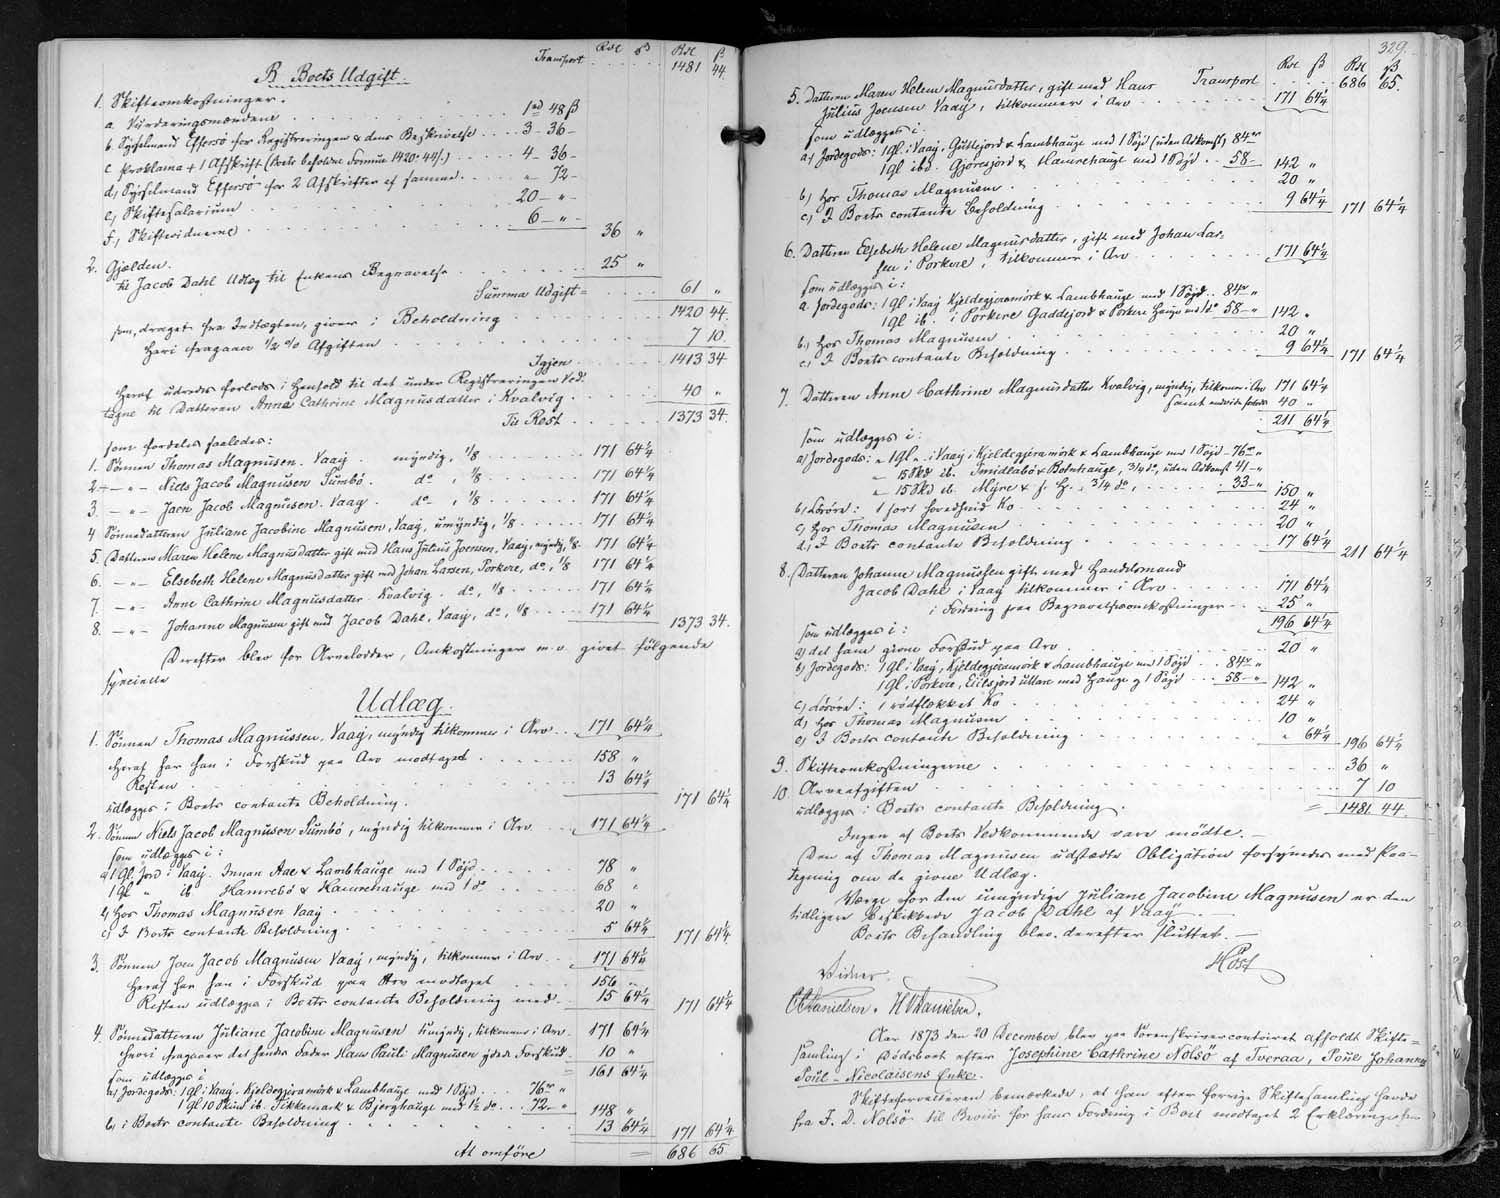 Rdl ß Rdl ß
Transport . . . . 1481 44.
B Boets Udgift.
1. Skifteomkostninger.
a. Vurderingsmændene . . . 1 rd 48 ß
b. Sysselmand Effersö for Registreringen & dens Beskrivelse . . . 3 - 36 -
c Proklama + 1 Afskrift (Boets beholdne Formue 1420-44ß.) . . . 4 - 36 -
d, Sysselmand Effersö for 2 Afskrifter af samme . . . " - 72 -
e, Skiftesalarium . . . 20 - " -
f, Skiftevidnerne . . . 6 - " -
36 "
2. Gjælden.
til Jacob Dahl Udlæg til Enkens Begravelse . . . 25 "
Summa Udgift = . . . 61 "
som, draget fra Indtægten, giver i Beholdning . . . 1420 44.
Heri fragaaer 1/2 % Afgiften . . . 7 10.
Igjen . . . 1413 34
Heraf udredes forlods i Henhold til det under Registreringen Ved-
tagne til Datteren Anna Cathrine Magnusdatter i Kvalvig . . . 40 "
Til Rest . . . 1373 34.
som fordeles saaledes:
1. Sönnen Thomas Magnusen. Vaag. myndig, 1/8 . . . 171 64 1/4
2 - " - Niels Jacob Magnusen Sumbö. do , 1/8 . . . 171 64 1/4
3. - " - Joen Jacob Magnusen. Vaag. do , 1/8 . . . 171 64 1/4
4 Sönnedatteren Juliane Jacobine Magnusen, Vaag, umyndig, 1/8 . . . 171 64 1/4
5 Datteren Maren Helene Magnusdatter gift med Hans Julius Joensen, Vaag, myndig, 1/8. 171 64 1/4
6. - " - Elsebeth Helene Magnusdatter gift med Johan Larsen, Porkere, do, 1/8 171 64 1/4
7. - " - Anne Cathrine Magnusdatter. Kvalvig. do, 1/8 . . . 171 64 1/4
8. - " - Johanne Magnusen gift med Jacob Dahl, Vaag, do, 1/8 . . . 171 64 1/4 1373 34.
Derefter blev for Arvelodder, Omkostninger m. v. givet fölgende
specielle
Udlæg.
1. Sönnen Thomas Magnussen, Vaag, myndig tilkommer i Arv . . . 171 64 1/4
Heraf har han i Forskud paa Arv modtaget . . . 158 "
Resten . . . 13 64 1/4
udlægges i Boets contante Beholdning. 171 64 1/4
2. Sönnen Niels Jacob Magnusen Sumbö, myndig tilkommer i Arv . . . 171 64 1/4
som udlægges i:
a) 1 Gl. Jord i Vaag. Innan Aae & Lambhauge med 1 Söjd . . . 78 "
1 gl " ib Hamrebö & Hamrehauge med 1 do . . . 68 "
b, Hos Thomas Magnusen Vaag . . . 20 "
c, I Boets contante Beholdning . . . 5 64 1/4 171 64 1/4
3. Sönnen Joen Jacob Magnusen Vaag, myndig, tilkommer i Arv . . . 171 64 1/4
Heraf har han i Forskud paa Arv modtaget . . . 156 "
Resten udlægges i Boets contante Beholdning med . . . 15 64 1/4 171 64 1/4
4. Sönnedatteren Juliane Jacobine Magnusen umyndig, tilkommer i Arv. 171 64 1/4
Heri fragaaer det hendes Fader Hans Pauli Magnusen ydede Forskud . 10 "
161 64 1/4
som udlægges i
a) Jordegods: 1 gl i Vaag. Kjeldegjeramörk & Lambhauge med 1 Söjd . . . 76 rd "
1 gl 10 Skind ib. Tikkemark & Bjerghauge med 1 1/2 do . . . 72 - " 148 "
b, i Boets contante Beholdning . . . 13 64 1/4 171 64 1/4
At omföre = 686 65.
329.
Rdl ß Rdl ß
Transport . . . 686 65.
5. Datteren Maren Helene Magnusdatter, gift med Hans
Julius Joensen Vaag, tilkommer i Arv . . . 171 64 1/4
som udlægges i:
a, Jordegods: 1 gl. i Vaag, Guttejord & Lambhauge med 1 Söjd (uden Adkomst) 84 rd
1 gl ibd. Gjörejord & Hamrehauge med 1 Söjd . . 58 - 142 "
b, hos Thomas Magnusen . . . 20 "
c, I Boets contante Beholdning . . . 9 64 1/4 171 64 1/4
6. Datteren Elsebeth Helene Magnusdatter, gift med Johan Lar-
sen i Porkere, tilkommer i Arv . . . 171 64 1/4
som udlægges i:
a. Jordegods: 1 gl i Vaag Kjeldegjeramörk & Lambhauge med 1 Söjd . . 84 rd "
1 gl ib. i Porkere Gaddejord & Porkere Hauge med 1 do 58 - " 142 "
b, Hos Thomas Magnusen . . . 20 "
c, I Boets contante Beholdning . . . 9 64 1/4 171 64 1/4
7. Datteren Anne Cathrine Magnusdatter Kvalvig, myndig, tilkommer i Arv 171 64 1/4
samt endvidere forlods 40 "
211 64 1/4
som udlægges i:
a) Jordegods: " 1 gl " i Vaag i Kjeldegjeramörk & Lambhauge med 1 Söjd - 76 rd "
" 15 Skd ib. Smidlabö & Botnhauge, 3/4 do, uden Adkomst 41 - "
" 15 Skd ib. Myre & f. H., 3/4 do, . . . 33 - " 150 "
b, Lösöre: 1 sort hvedhuid Ko . . . 24 "
c, Hos Thomas Magnusen . . . 20 "
d, I Boets contante Beholdning . . . 17 64 1/4 211 64 1/4
8. Datteren Johanne Magnussen gift med Handelsmand
Jacob Dahl i Vaag tilkommer i Arv . . . 171 64 1/4
i Fordring paa Begravelsesomkostninger . . . 25 "
196 64 1/4
som udlægges i:
a) det ham givne Forskud paa Arv . . . 20 "
b) Jordegods: 1 gl i Vaag, Kjeldegjeramörk & Lambhauge med 1 Söjd . . 84 rd "
1 gl i Porkere, Eiilsjord uttare med Hauge & 1 Söjd . . . 58 - " 142 "
c, Lösöre: 1 rödflekket Ko . . . 24 "
d, Hos Thomas Magnusen . . . 10 "
e, I Boets contante Beholdning . . . " 64 1/4 196 64 1/4
9. Skifteomkostningerne . . . 36 "
10. Arveafgiften . . . 7 10
udlægges i Boets contante Beholdning. = 1481 44.
Ingen af Boets Vedkommende vare mödte. -
Den af Thomas Magnusen udstædte Obligation forsynedes med Paa-
tegning om de givne Udlæg.
Værge for den umyndige Juliane Jacobine Magnusen er den
tidligere beskikkede Jacob Dahl af Vaag. -
Boets Behandling blev derefter sluttet. -
Höst
Vidner.
Danielsen. H Danielsen.
Aar 1873 den 20 December blev paa Sörenskrivercontoiret afholdt Skifte-
samling i Dödsboet efter Josephine Cathrine Nolsö af Tveraa, Poul Johannes
Poul-Nicolaisens Enke.
Skifteforvalteren bemærkede, at han efter forrige Skiftesamling havde
fra F. D. Nolsö til Beviis for hans Fordring i Boet modtaget 2 Erklæringer fra